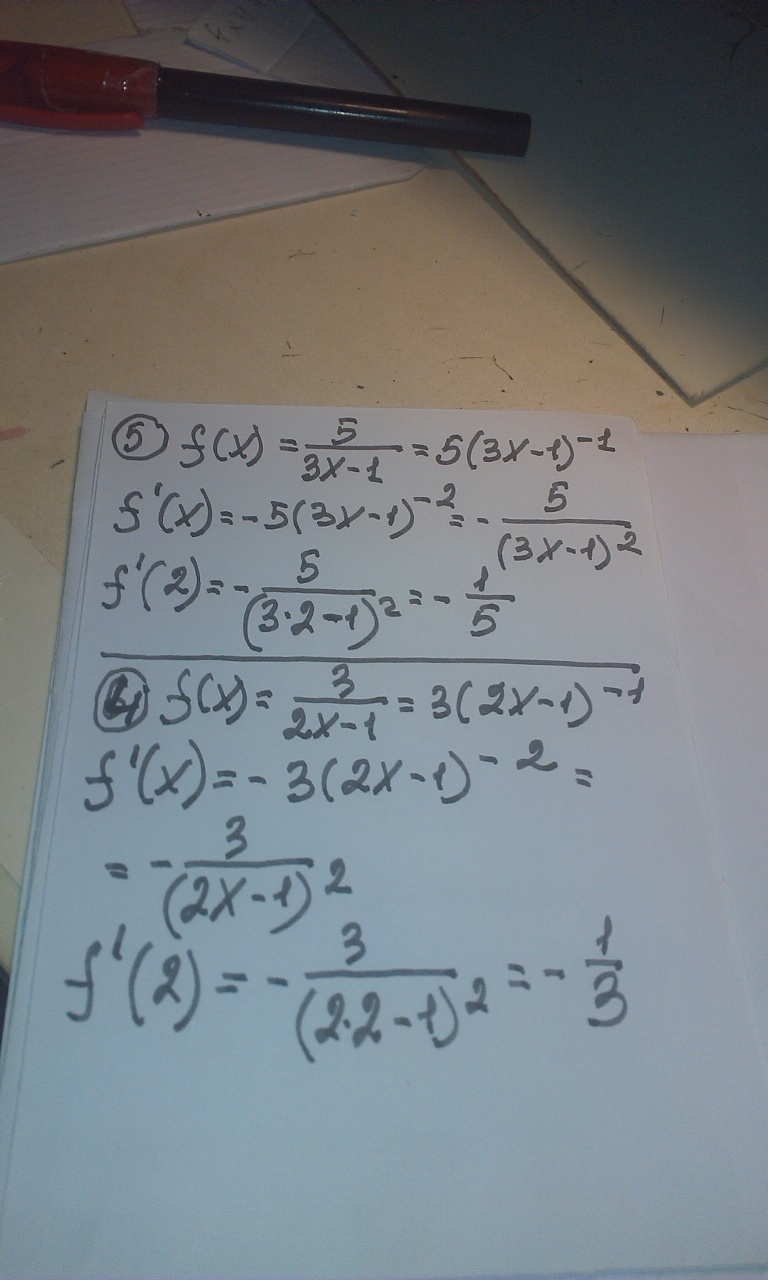 ⑤ f(x) = 5/(3x-1) = 5(3x-1)^-1
f'(x) = -5(3x-1)^-2 = - 5/(3x-1)^2
f'(2) = - 5/(3·2-1)^2 = - 1/5
④ f(x) = 3/(2x-1) = 3(2x-1)^-1
f'(x) = - 3(2x-1)^-2 =
= - 3/(2x-1)^2
f'(2) = - 3/(2·2-1)^2 = - 1/3